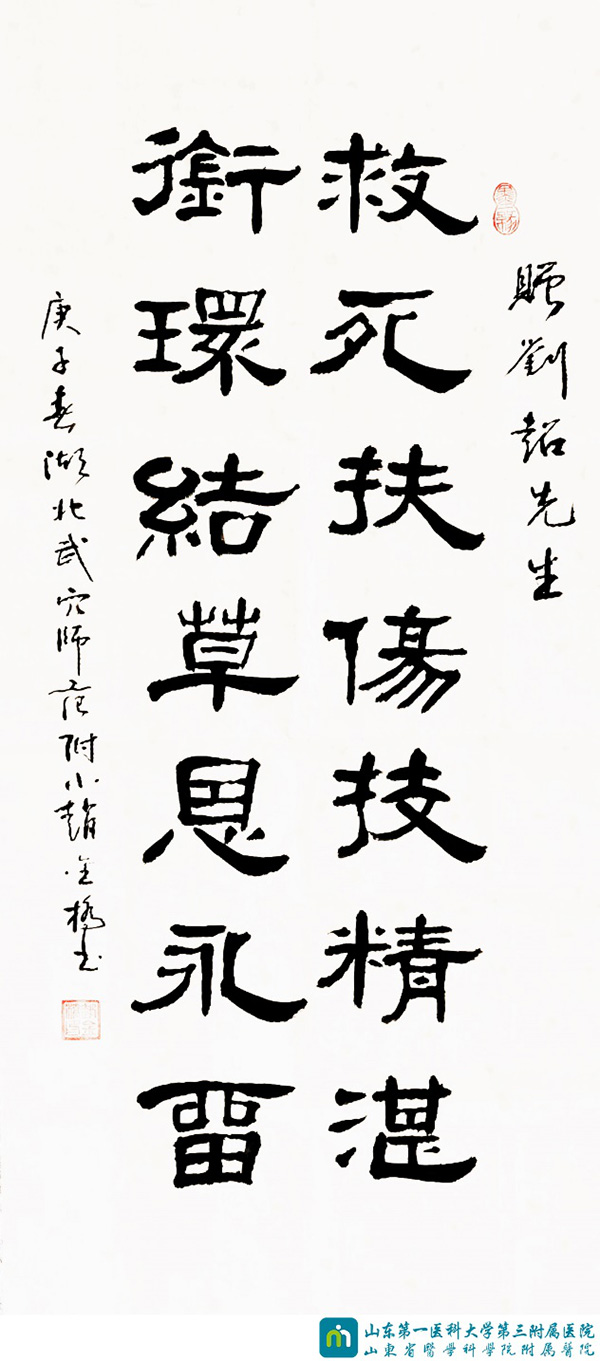 贈劉韶先生
救死扶傷技精湛
銜環結草恩永畱
庚子春湖北武穴師范附小趙金橋书
山东第一医科大学第三附属医院
山東省醫學科學院附属醫院